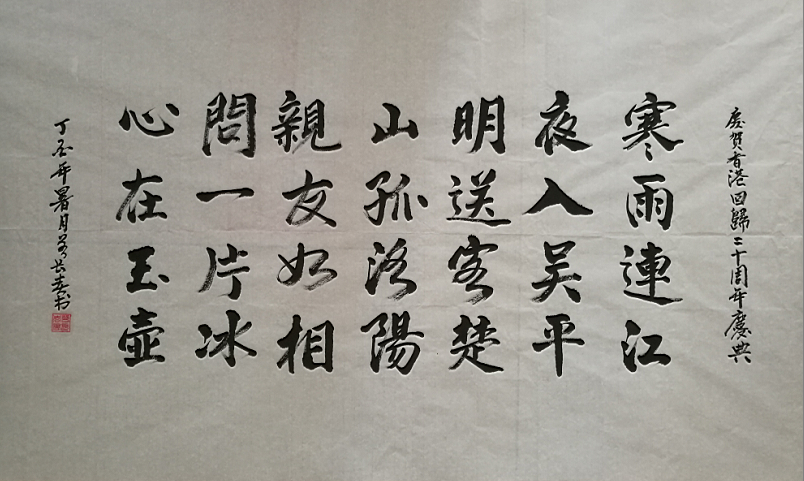 慶賀香港回歸二十周年慶典
寒雨連江
夜入吳平
明送客楚
山孤洛陽
親友如相
問一片冰
心在玉壺
丁酉年暑月